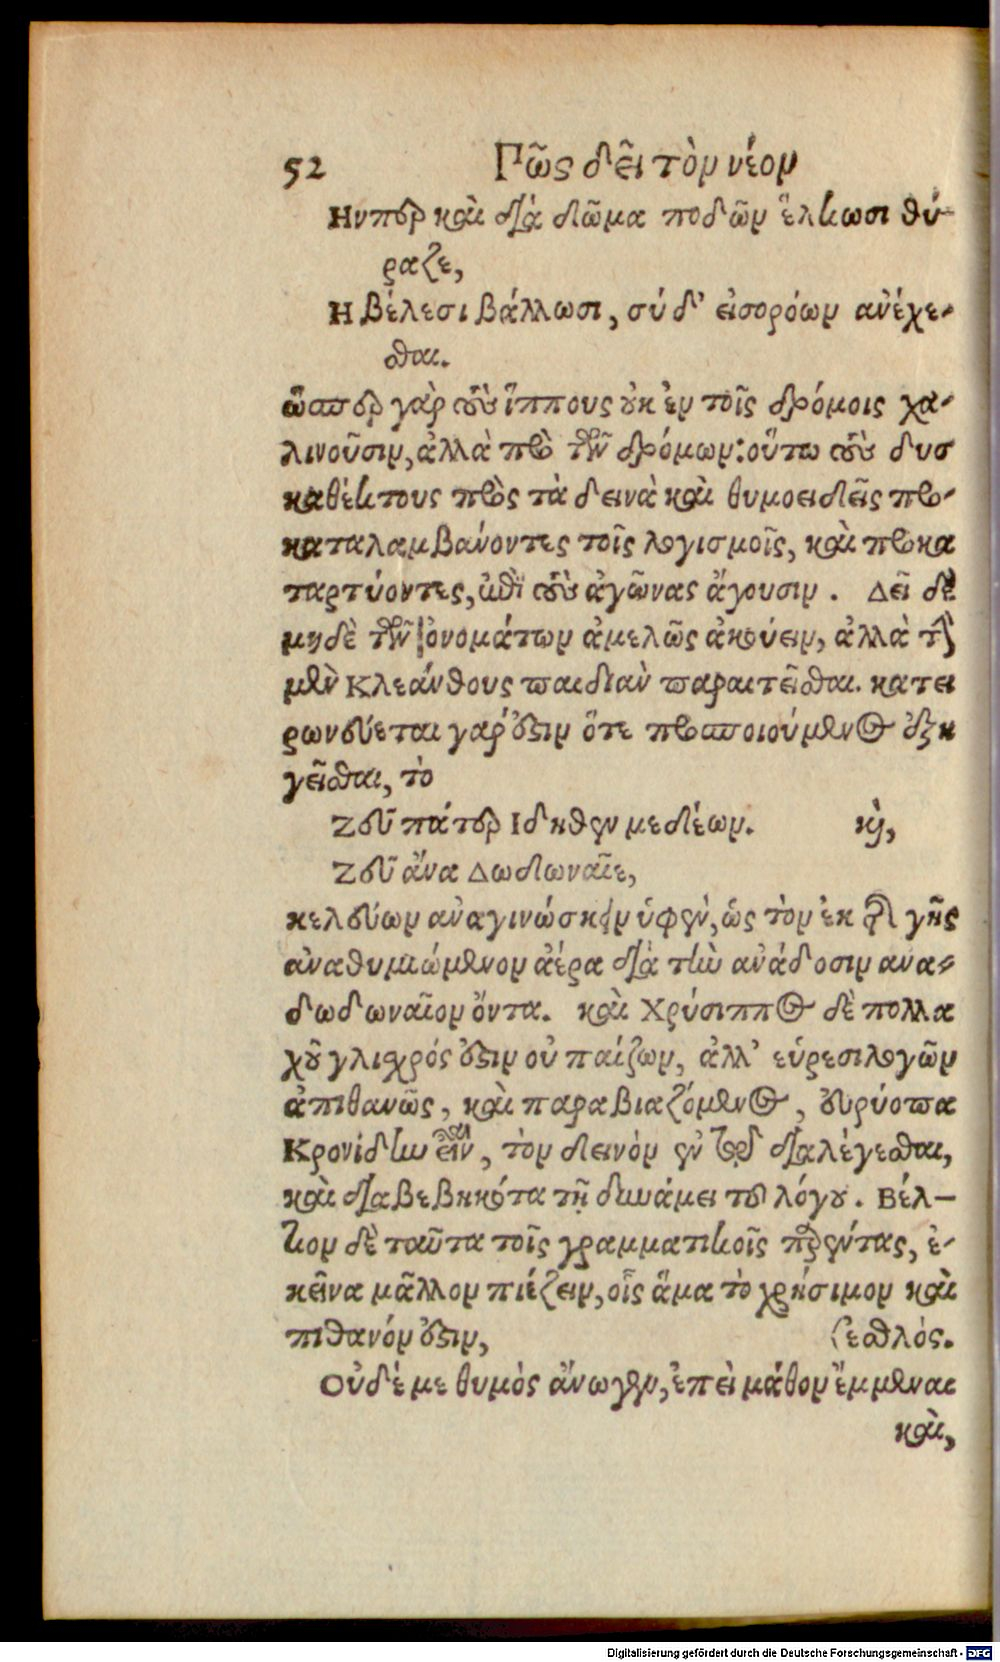 52 Πῶς δεῖ τὸν νέον
Ηνπερ καὶ διὰ δῶμα ποδῶν ἕλκωσι θύ-
ραζε,
Η βέλεσι βάλλωσι, σύ δ' εἰσορόων ανέχε-
σθαι.
ὥσπερ γὰρ τοὺς ἵππους οὐκ ἐν τοῖς δρόμοις χα-
λινοῦσιν, ἀλλὰ πρὸ τῶν δρόμων: οὕτω τοὺς δυσ
καθέκτους πρὸς τὰ δεινὰ καὶ θυμοειδεῖς προ-
καταλαμβάνοντες τοῖς λογισμοῖς, καὶ προκα
ταρτύοντες, ἐπὶ τοὺς ἀγῶνας ἄγουσιν. Δεῖ δὲ
μηδὲ τῶν ὀνομάτων ἀμελῶς ἀκούειν, ἀλλὰ τὴν
μὲν Κλεάνθους παιδιὰν παραιτεῖσθαι. κατει
ρωνεύεται γάρ ἐστιν ὅτε προσποιούμενος ἐξη
γεῖσθαι, τὸ
Ζεῦ πάτερ Ιδηθεν μεδέων. καὶ,
Ζεῦ ἄνα Δωδωναῖε,
κελεύων αναγινώσκειν ὑφὲν, ὡς τὸν ἐκ τῆς γῆς
ἀναθυμιώμενον ἀέρα διὰ τὴν ανάδοσιν ανα-
δωδωναῖον ὄντα. καὶ Χρύσιππος δὲ πολλα
χοῦ γλισχρός ἐστιν οὐ παίζων, ἀλλ' εὑρεσιλογῶν
ἀπιθανῶς, καὶ παραβιαζόμενος, εὐρύοπα
Κρονίδην εἶναι, τὸν δεινὸν ἐν τῷ διαλέγεσθαι,
καὶ διαβεβηκότα τῇ δυνάμει τοῦ λόγου. Βέλ-
τιον δὲ ταῦτα τοῖς γραμματικοῖς παρέντας, ἐ-
κεῖνα μᾶλλον πιέζειν, οἷς ἅμα τὸ χρήσιμον καὶ
πιθανόν ἐστιν, (εσθλός.
Οὐδέ με θυμὸς ἄνωγεν, ἐπεὶ μάθον ἔμμεναι
καὶ,
Digitalisierung gefördert durch die Deutsche Forschungsgemeinschaft - DFG